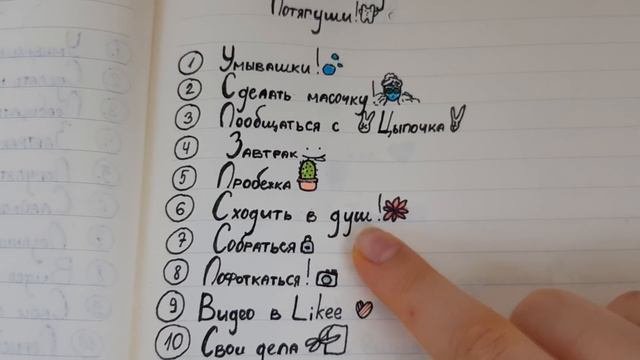 Потягуши!
1 Умывашки!
2 Сделать масочку
3 Пообщаться с Цыпочка
4 Завтрак
5 Пробежка
6 Сходить в душ!
7 Собраться
8 Пофоткаться!
9 Видео в Likee
10 Свои дела